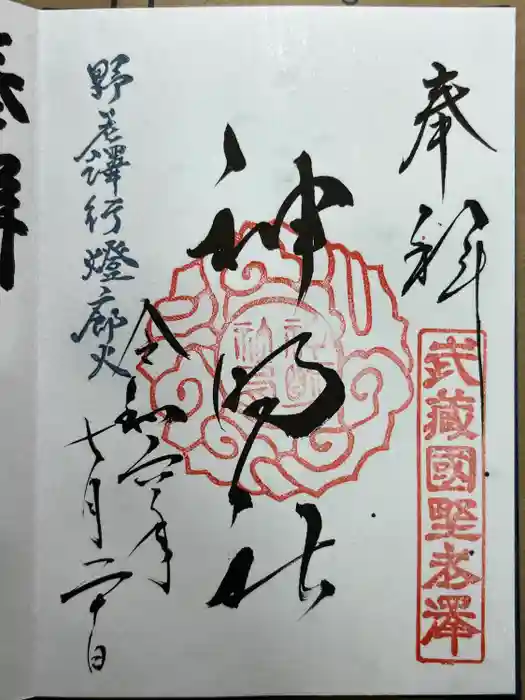 奉拝
武藏國埜老澤
神明社
令和六年
七月二十日
野老澤行燈廊火